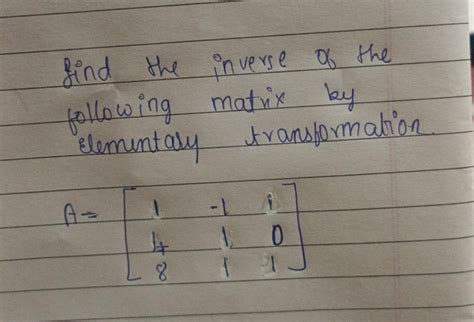 find the inverse of the
following matrix by
elementary transformation.
A = [ 1 -1 1
4 1 0
8 1 1 ]